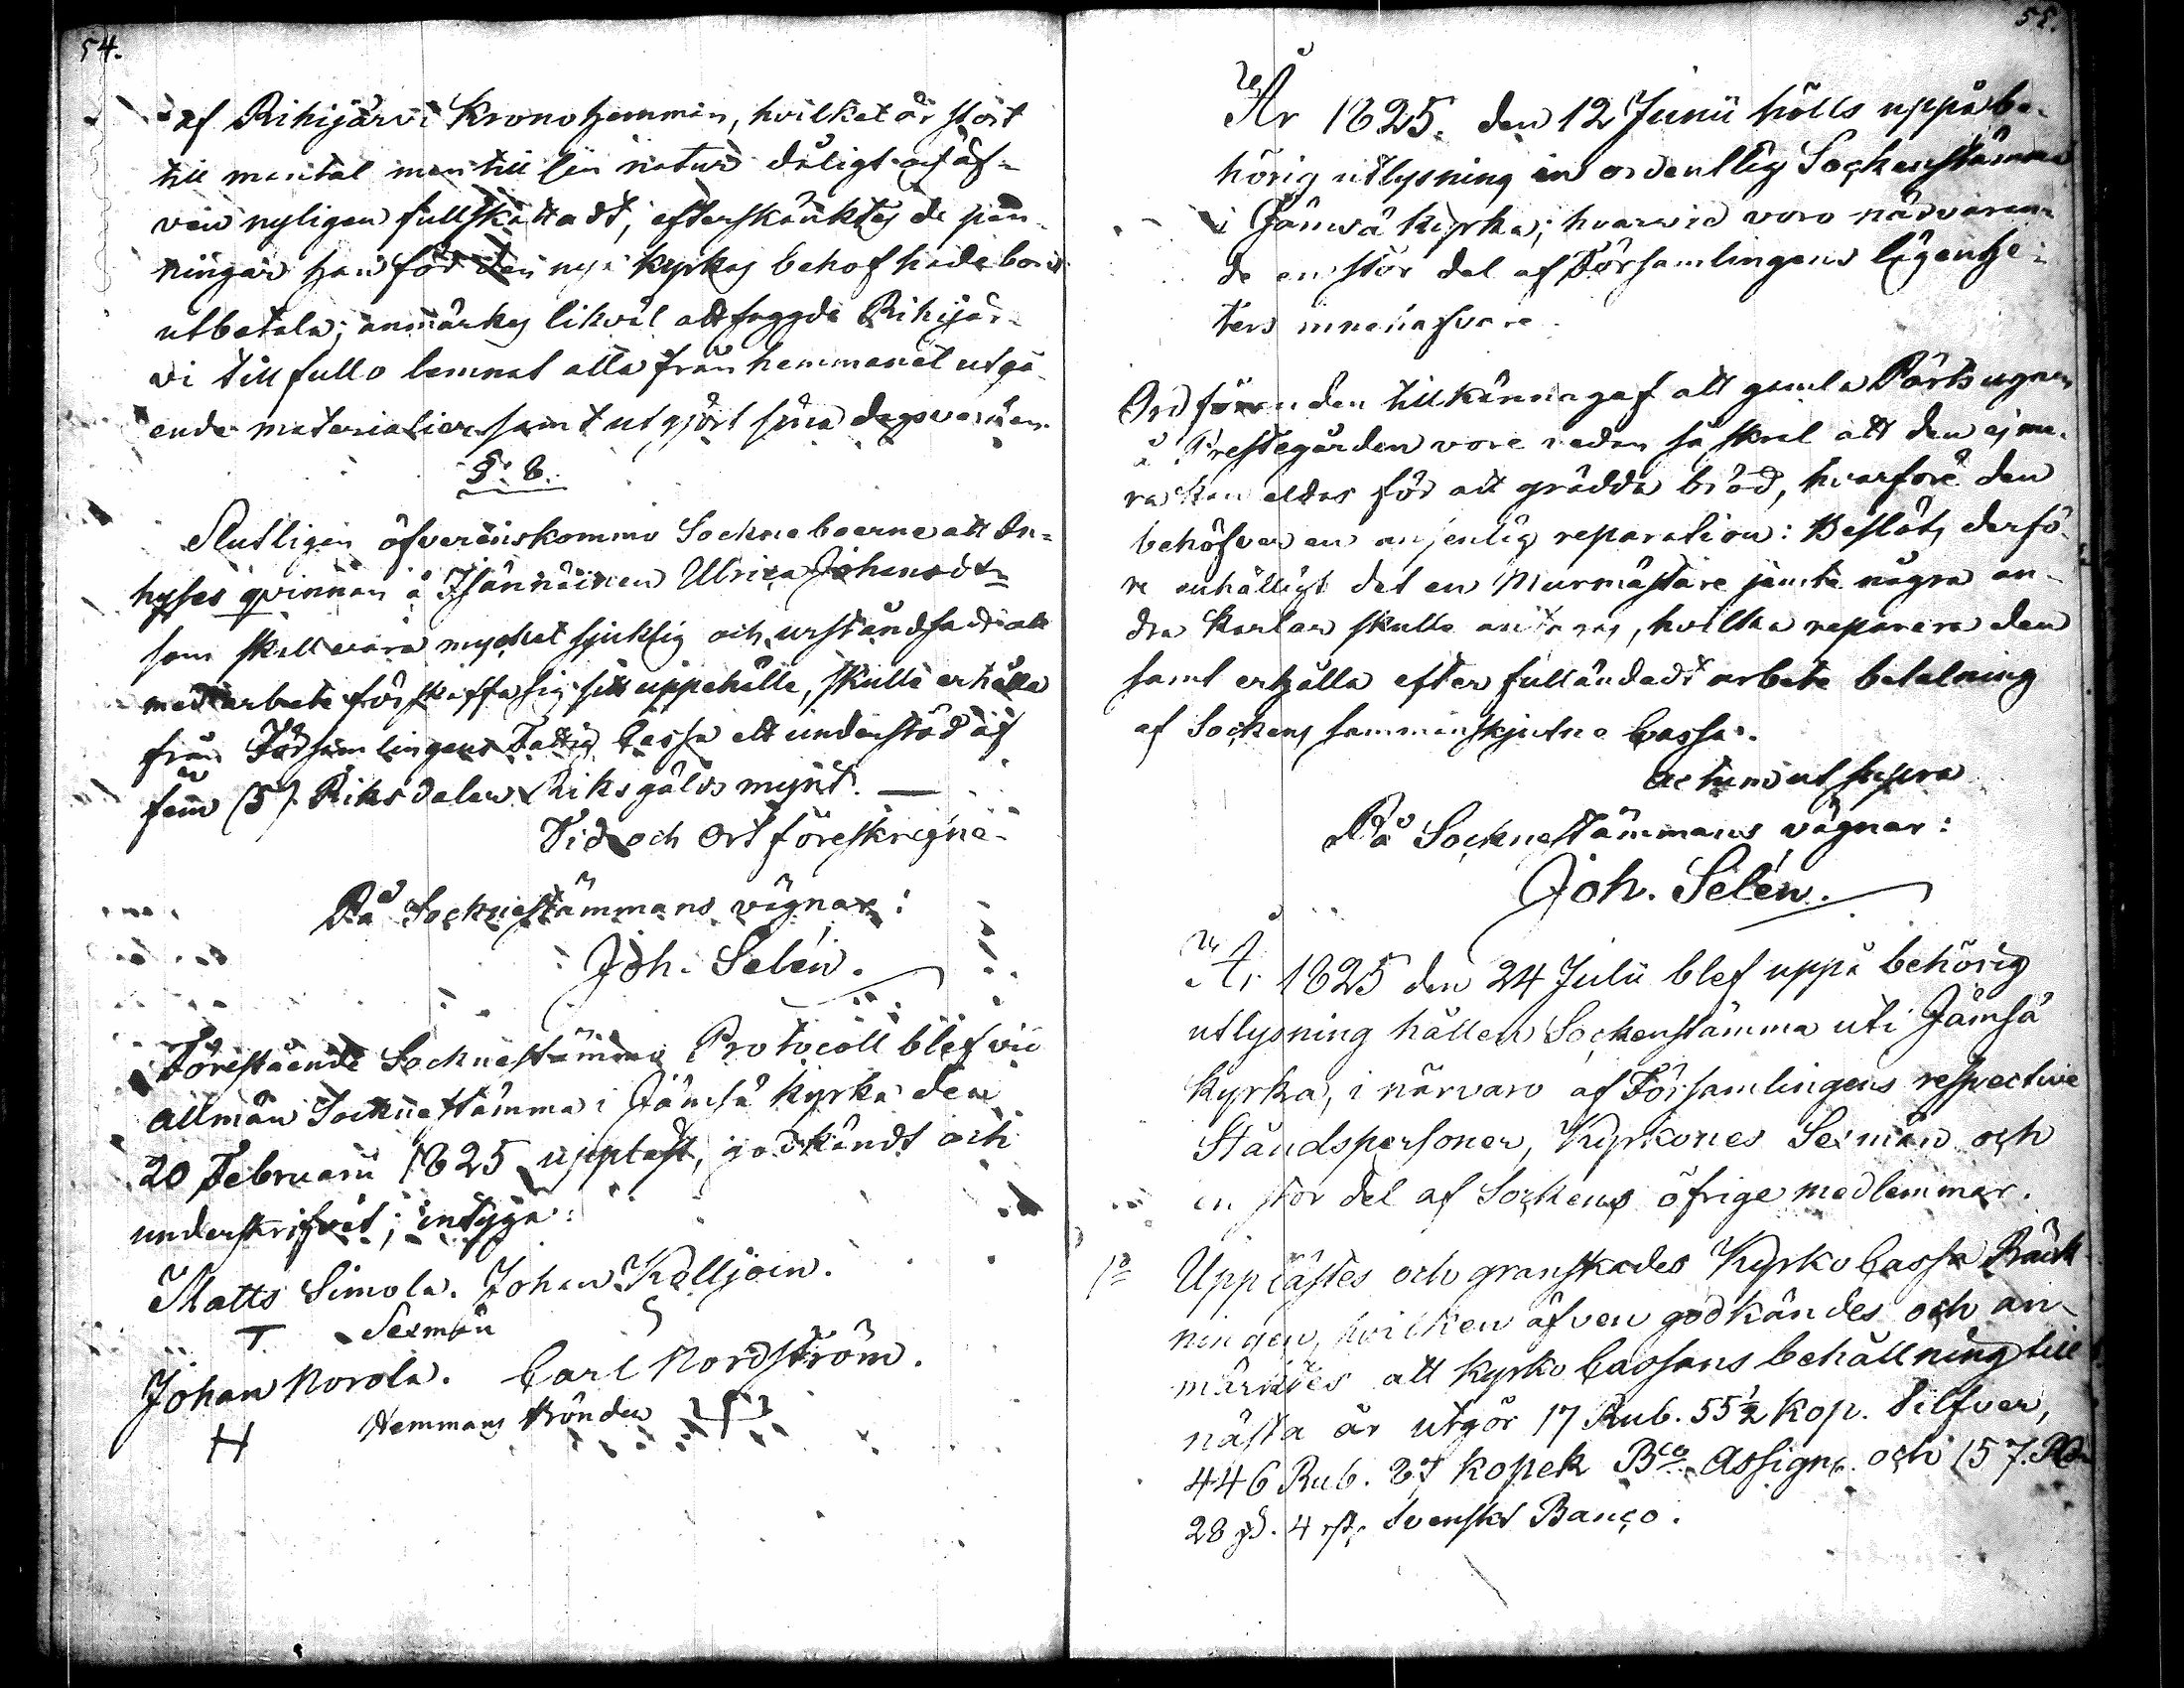 54.
af Rihijärvi Kronohemman, hvilket är stort
till mantal men till sin natur dåligt och äf-
ven nyligen fullskattadt, efterskänktes de pen-
ningar han för den nya kyrkas behof hade bort
utbetala; anmärkes likväl att sagde Rihijär-
vi till fullo lemnat alla från hemmanet utgå-
ende materialier samt utgjort sina dagsverken.
§. 8.
Slutligen öfverenskommo Socknaboerne att In-
hyses qvinnan å Isännäinen Ulrica Johansdr
som skall vara mycket sjuklig och urståndsatt att
med arbete förskaffa sig sitt uppehälle, skulle erhålla
från Församlingens Fattig Cassa ett understöd af
fem (5) Riksdaler Riksgälds mynt. —
Tid och Ort föreskrefne
På Socknestämmans vägnar:
Joh. Selén.
Förestående Socknestämmo Protocoll blef vid
allmän Socknestämma i Jämsä kyrka den
20 Februarii 1825 uppläst, godkändt och
underskrifvet; intyga:
Matts Simola. Johan Kålljoin.
T Sexmän
Johan Norola. Carl Nordström.
H Hemmans Bönder
55.
År 1825. den 12 Junii hölls uppå be-
hörig utlysning en ordentlig Sockenstämma
i Jämsä kyrka; hvarvid voro närvaran-
de en stor del af Församlingens lägenhe-
ters innehafvare.
Ordföranden tillkännagaf att gamla Pörtsugnen
å Prestegården vore redan så skral att den ej me-
ra kan eldas för att grädda bröd, hvarföre den
behöfver en ansenlig reparation: Beslöts derfö-
re enhälligt det en Murmästare jämte några an-
dra Karlar skulle antagas, hvilka reparera den
samt erhålla efter fulländadt arbete betalning
af Sockens sammanskjutne Cassa.
actum ut supra
På Socknestämmans vägnar:
Joh. Selén.
År 1825 den 24 Julii blef uppå behörig
utlysning hållen Sockenstämma uti Jämsä
kyrka, i närvaro af Församlingens respective
Ståndspersoner, Kyrkones Sexmän och
en stor del af Sockens öfrige medlemmar.
1o Upplästes och granskades Kyrko Cassa Räk-
ningen, hvilken äfven godkändes och an-
märktes att Kyrko Cassans behållning till
nästa år utgör 17 Rub. 55½ Kop. Silfver,
446 Rub. 27 kopek Bco Assign. och 157 RD
28 s. 4 rst. Svenskt Banco.